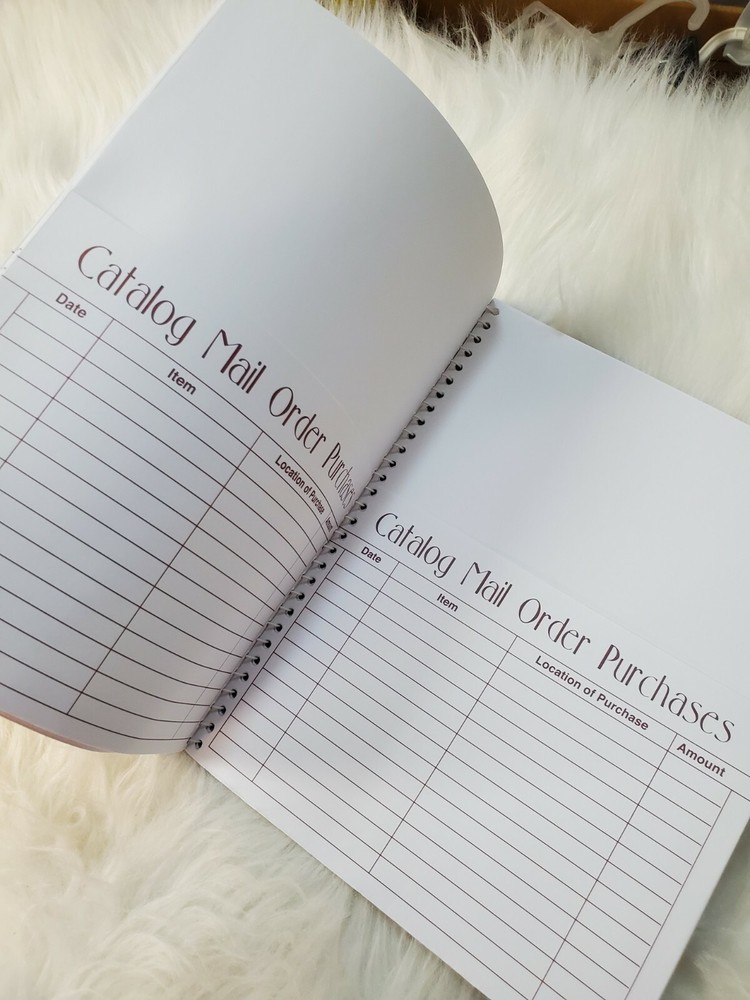 Catalog Mail Order Purchases
Date Item Location of Purchase
Catalog Mail Order Purchases
Date Item Location of Purchase Amount